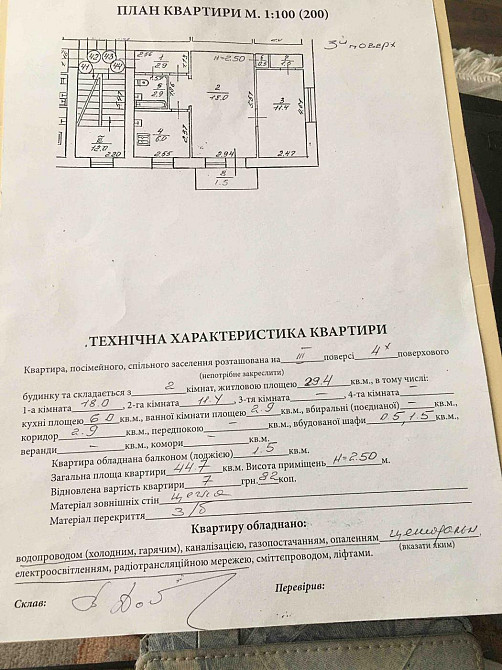 ПЛАН КВАРТИРИ М. 1:100 (200)
3й поверх
42 43
41 44
2.66
1
2.9
H=2.50
2
18.0
5
2.9
3
11.4
6
0.5
4
6.0
II
12.0
2.20
2.55
2.94
2.47
8
1.5
ТЕХНІЧНА ХАРАКТЕРИСТИКА КВАРТИРИ
Квартира, посімейного, спільного заселення розташована на III поверсі 4х поверхового
(непотрібне закреслити)
будинку та складається з 2 кімнат, житловою площею 29.4 кв.м., в тому числі:
1-а кімната 18.0, 2-га кімната 11.4, 3-тя кімната –, 4-та кімната –
кухні площею 6.0 кв.м., ванної кімнати площею 2.9 кв.м., вбиральні (поєднаної) –
коридор 2.9 кв.м., передпокою – кв.м., вбудованої шафи 0.5, 1.5 кв.м.,
веранди – кв.м., комори – кв.м.
Квартира обладнана балконом (лоджією) 1.5 кв.м.
Загальна площа квартири 44.7 кв.м. Висота приміщень H=2.50 м.
Відновлена вартість квартири 7 грн. 82 коп.
Матеріал зовнішніх стін цегла
Матеріал перекриття З/б
Квартиру обладнано:
водопроводом (холодним, гарячим), каналізацією, газопостачанням, опаленням централь
(вказати яким)
електроосвітленням, радіотрансляційною мережею, сміттєпроводом, ліфтами.
Склав:
Перевірив: